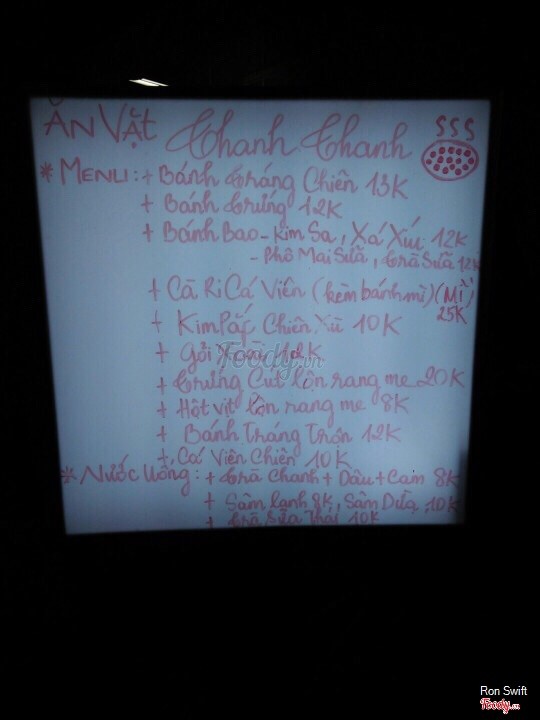 ĂN VẶT Thanh Thanh
* MENU: + Bánh tráng Chiên 13K
+ Bánh trứng 12K
+ Bánh Bao - Kim Sa, Xá Xíu 12K
- Phô Mai Sữa, trà Sữa 12K
+ Cà Ri Cá Viên (kèm bánh mì) (Mì)
25K
+ Kim Chiên Xù 10K
+ gỏi 12K
+ trứng Cút lộn rang me 20K
+ Hột vịt lộn rang me 8K
+ Bánh Tráng Trộn 12K
+ Cá Viên Chiên 10K
* NƯỚC Uống: + trà Chanh + Dâu + Cam 8K
+ Sâm lạnh 8K, Sâm Dứa 10K
+ trà Sữa Thái 10K
Foody.vn
Ron Swift
Foody.vn